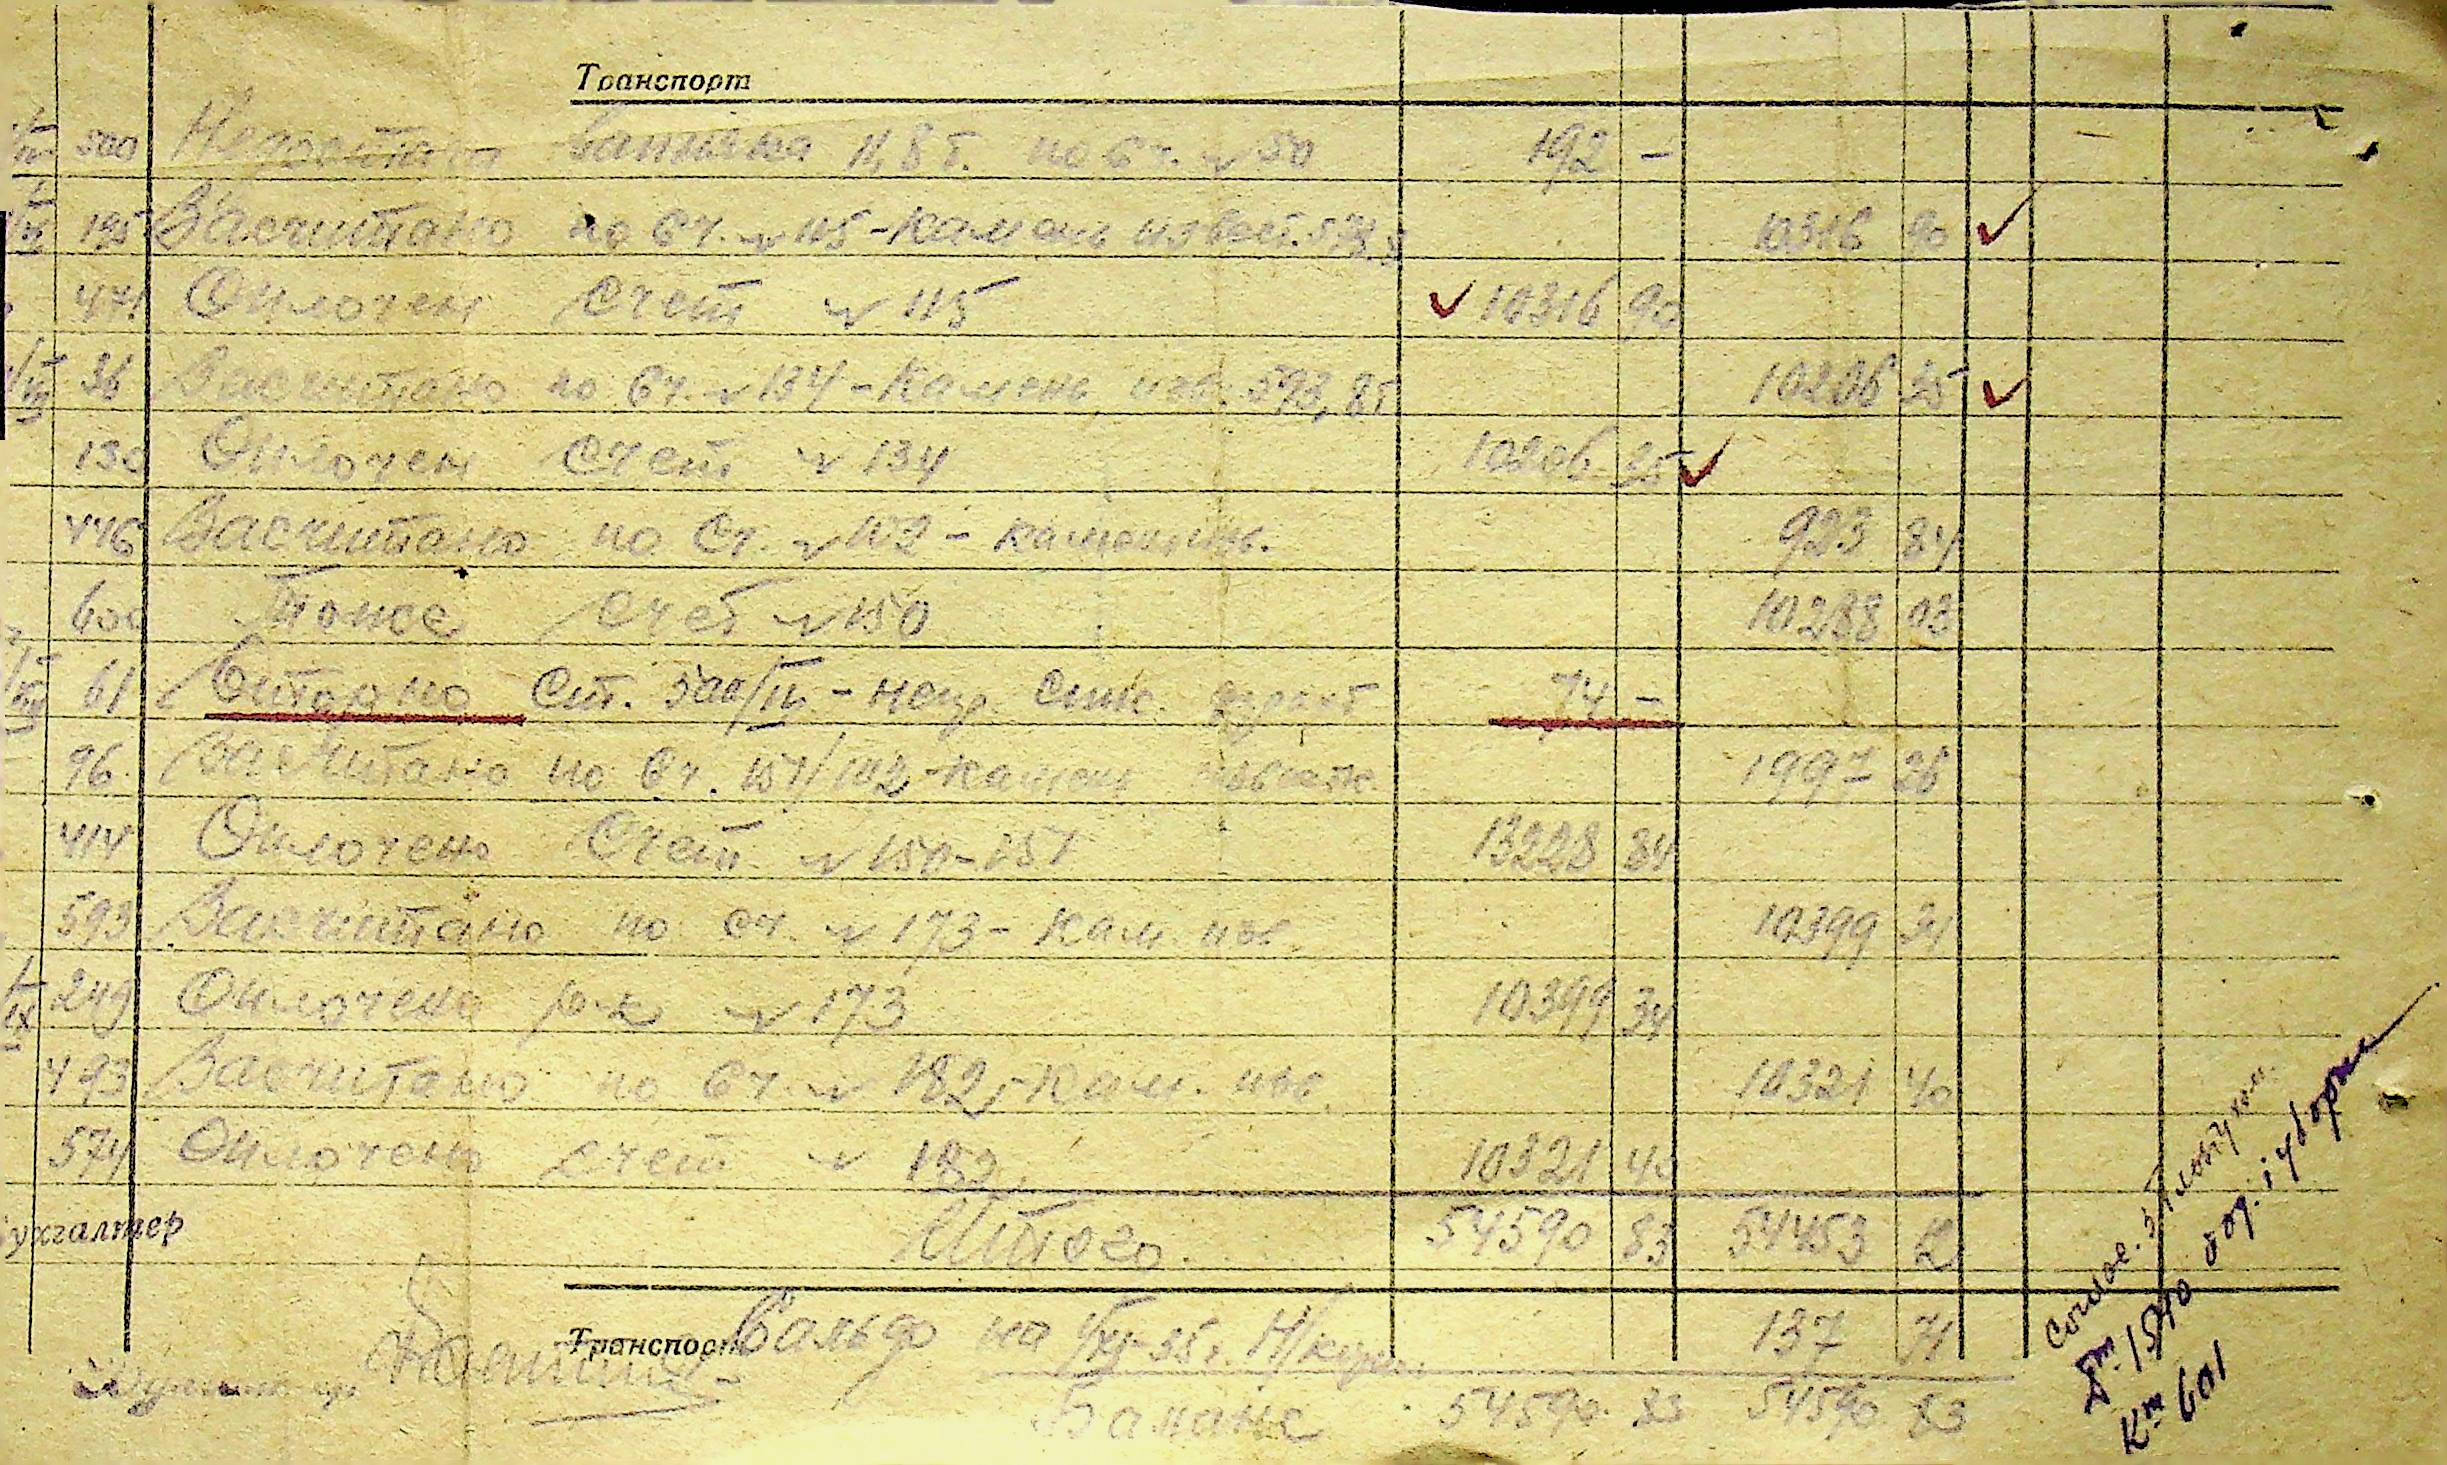 Транспорт
500 Недостача 11,8 т. по Сч. № 50 192 –
195 Засчитано по Сч. № 115 – Камень извест. 10316 90
471 Оплочен Счет № 115 10316 90
36 Засчитано по Сч. № 134 – Камень изв. 593,85 10206 35
130 Оплочен Счет № 134 10206 35
446 Засчитано по Сч. № 102 – камень изв. 923 84
600 Тоже Счет № 150 10288 03
61 Сторно Ст. 500/IV – 74 –
96 Засчитано по Сч. 151/102 – Камень известк. 1997 26
414 Оплочено Счет № 150–151 13228 84
593 Засчитано по сч. № 173 – Кам. изв. 10399 34
249 Оплочено № 173 10399 34
493 Засчитано по Сч. № 182, – Кам. изв. 10321 40
574 Оплочено счет № 182 10321 40
ухгалтер Итого 54590 83 54453 12
Транспорт Сальдо на 35 г. 137 71
Баланс 54590 83 54590 83
Дт. 1540
Кт 601